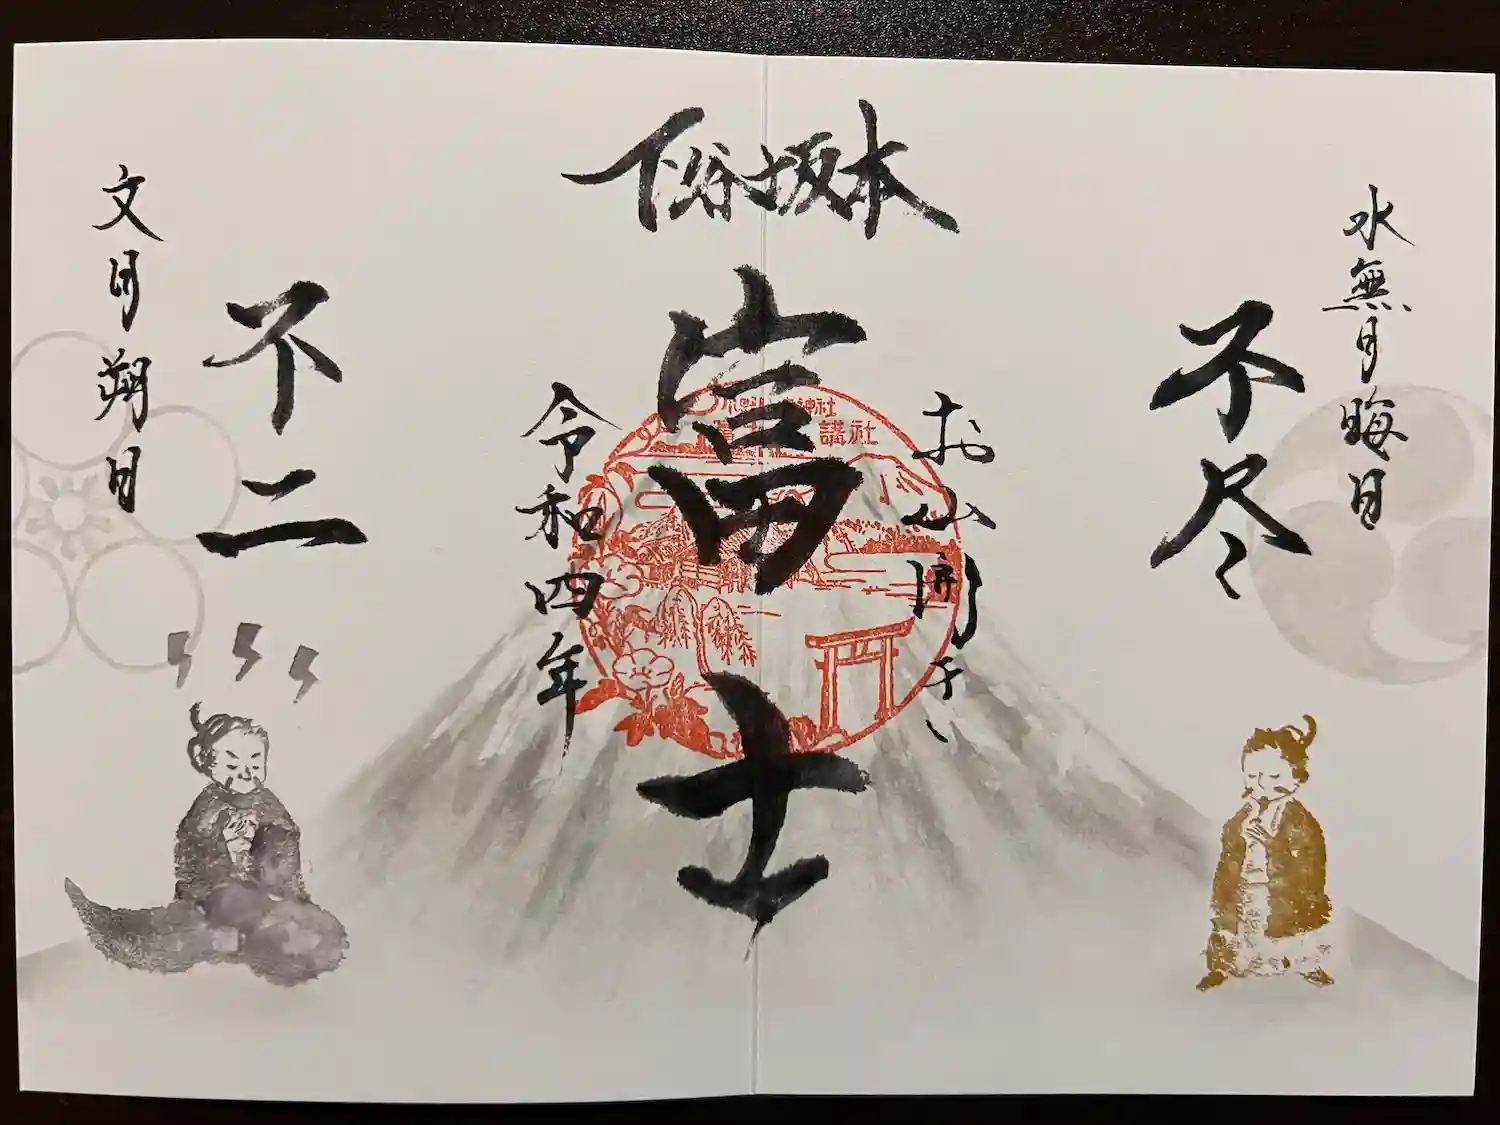 水無月晦日
不尽
お山開き
下谷坂本
富士
神社
講社
令和四年
不二
文月朔日